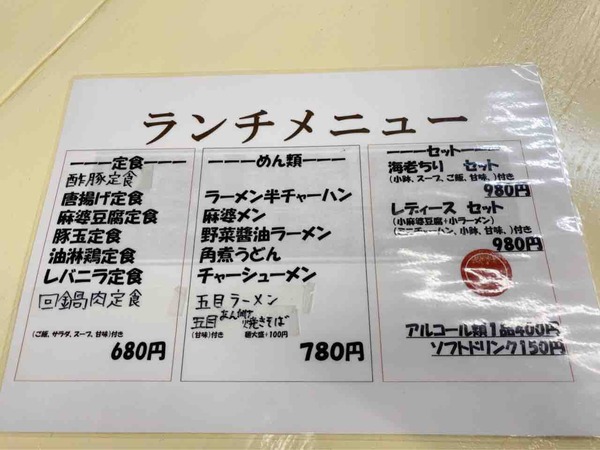 ランチメニュー
ーーー定食ーーー
酢豚定食
唐揚げ定食
麻婆豆腐定食
豚玉定食
油淋鶏定食
レバニラ定食
回鍋肉定食
(ご飯、サラダ、スープ、甘味)付き
680円
ーーーめん類ーーー
ラーメン半チャーハン
麻婆メン
野菜醬油ラーメン
角煮うどん
チャーシューメン
五目ラーメン
五目あん掛け焼きそば
(甘味)付き 麺大盛+100円
780円
ーーーセットーーー
海老ちり セット
(小鉢、スープ、ご飯、甘味、)付き
980円
レディース セット
(小麻婆豆腐+小ラーメン)
(ミニチャーハン、小鉢、甘味、)付き
980円
アルコール類1品400円
ソフトドリンク150円